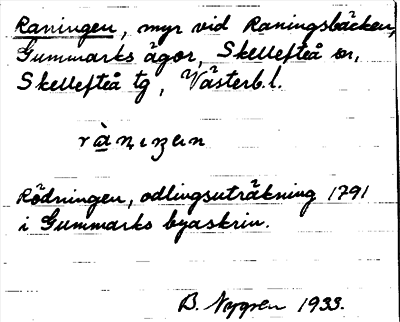 Raningen, myr vid Raningsbäcken,
Gummarks ägor, Skellefteå sn,
Skellefteå tg, Västerb.l.
Rödningen, odlingsuträkning 1791
i Gummarks byaskrin.
B. Nygren 1933.